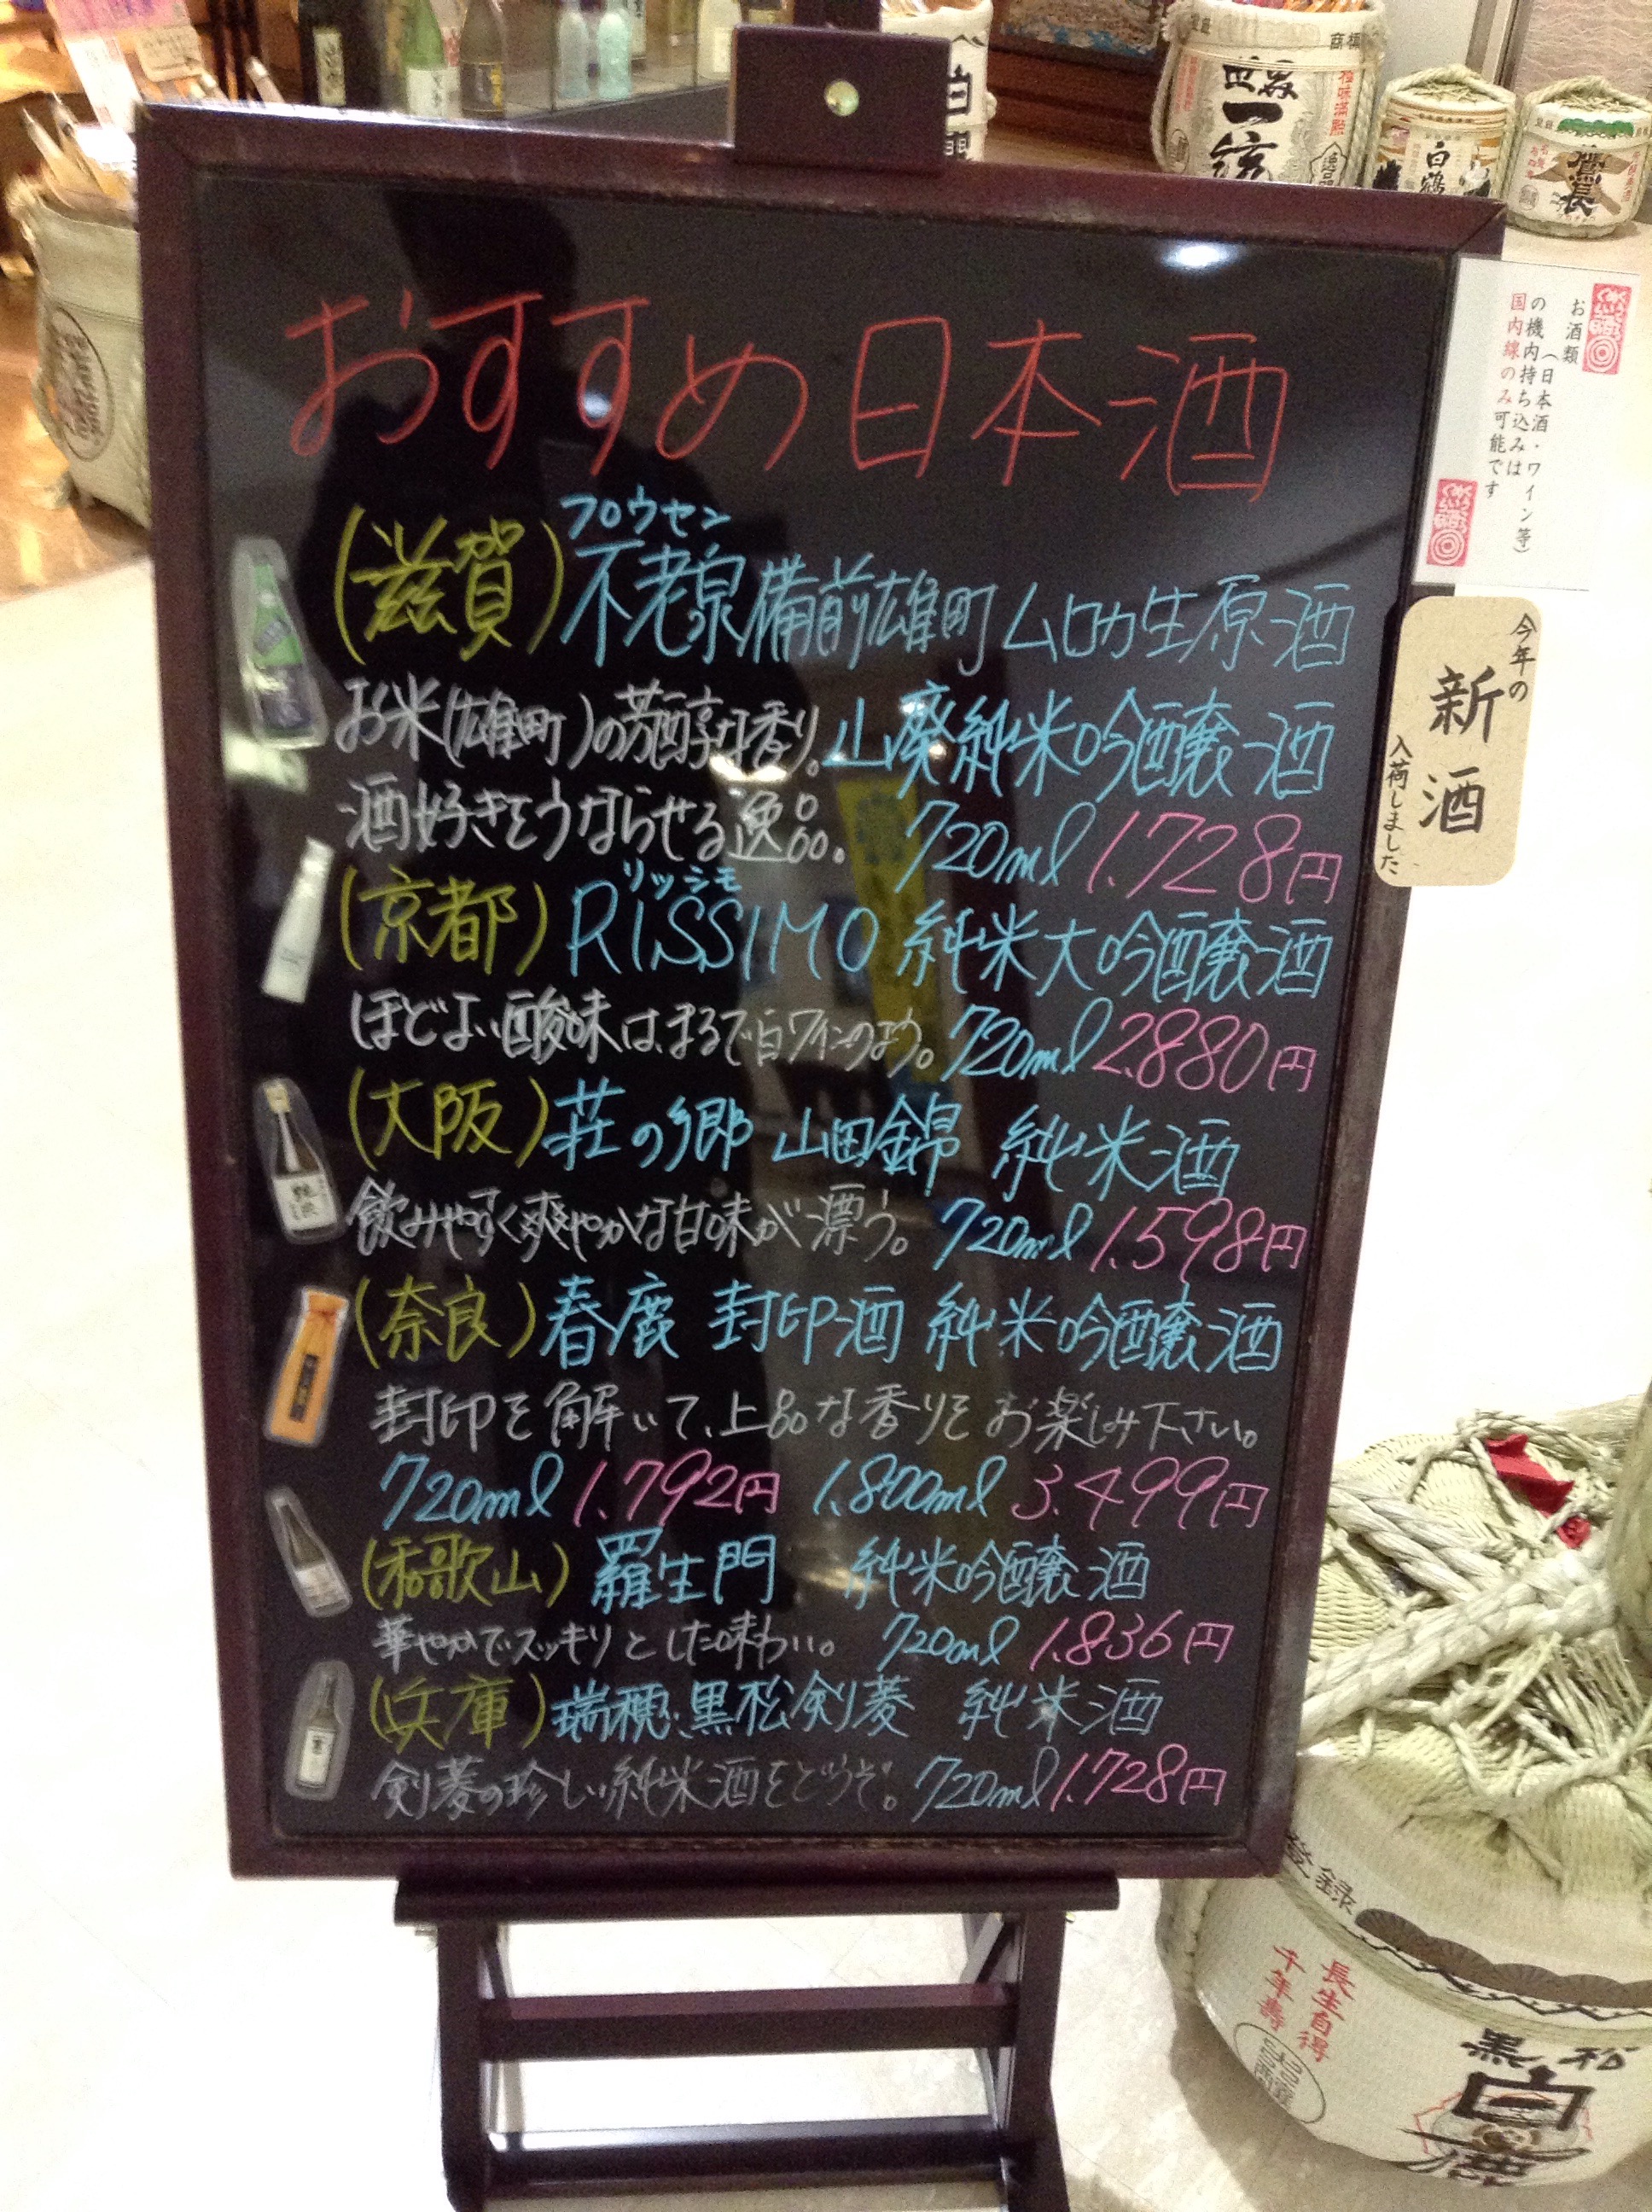 おすすめ日本酒
フロウセン
(滋賀)不老泉備前雄町ムロカ生原酒
お米(雄町)の芳醇な香り。山廃純米吟醸酒
酒好きをうならせる逸品。 720ml 1.728円
リッシモ
(京都)RISSIMO 純米大吟醸酒
ほどよい酸味は、まるで白ワインのよう。720ml 2.880円
(大阪)荘の郷 山田錦 純米酒
飲みやすく爽やかな甘味が漂う。 720ml 1.598円
(奈良)春鹿 封印酒 純米吟醸酒
封印を解いて、上品な香りをお楽しみ下さい。
720ml 1.792円 1.800ml 3.499円
(和歌山)羅生門 純米吟醸酒
華やかでスッキリとした味わい。 720ml 1.836円
(兵庫)瑞穂黒松剣菱 純米酒
剣菱の珍しい純米酒をどうぞ。720ml 1.728円
お酒類
(日本酒・ワイン等)
の機内持ち込みは
国内線のみ可能です
今年の
新酒
入荷しました
世界一統
白鶴
登録
長生自得
千年寿
黒松
白鹿